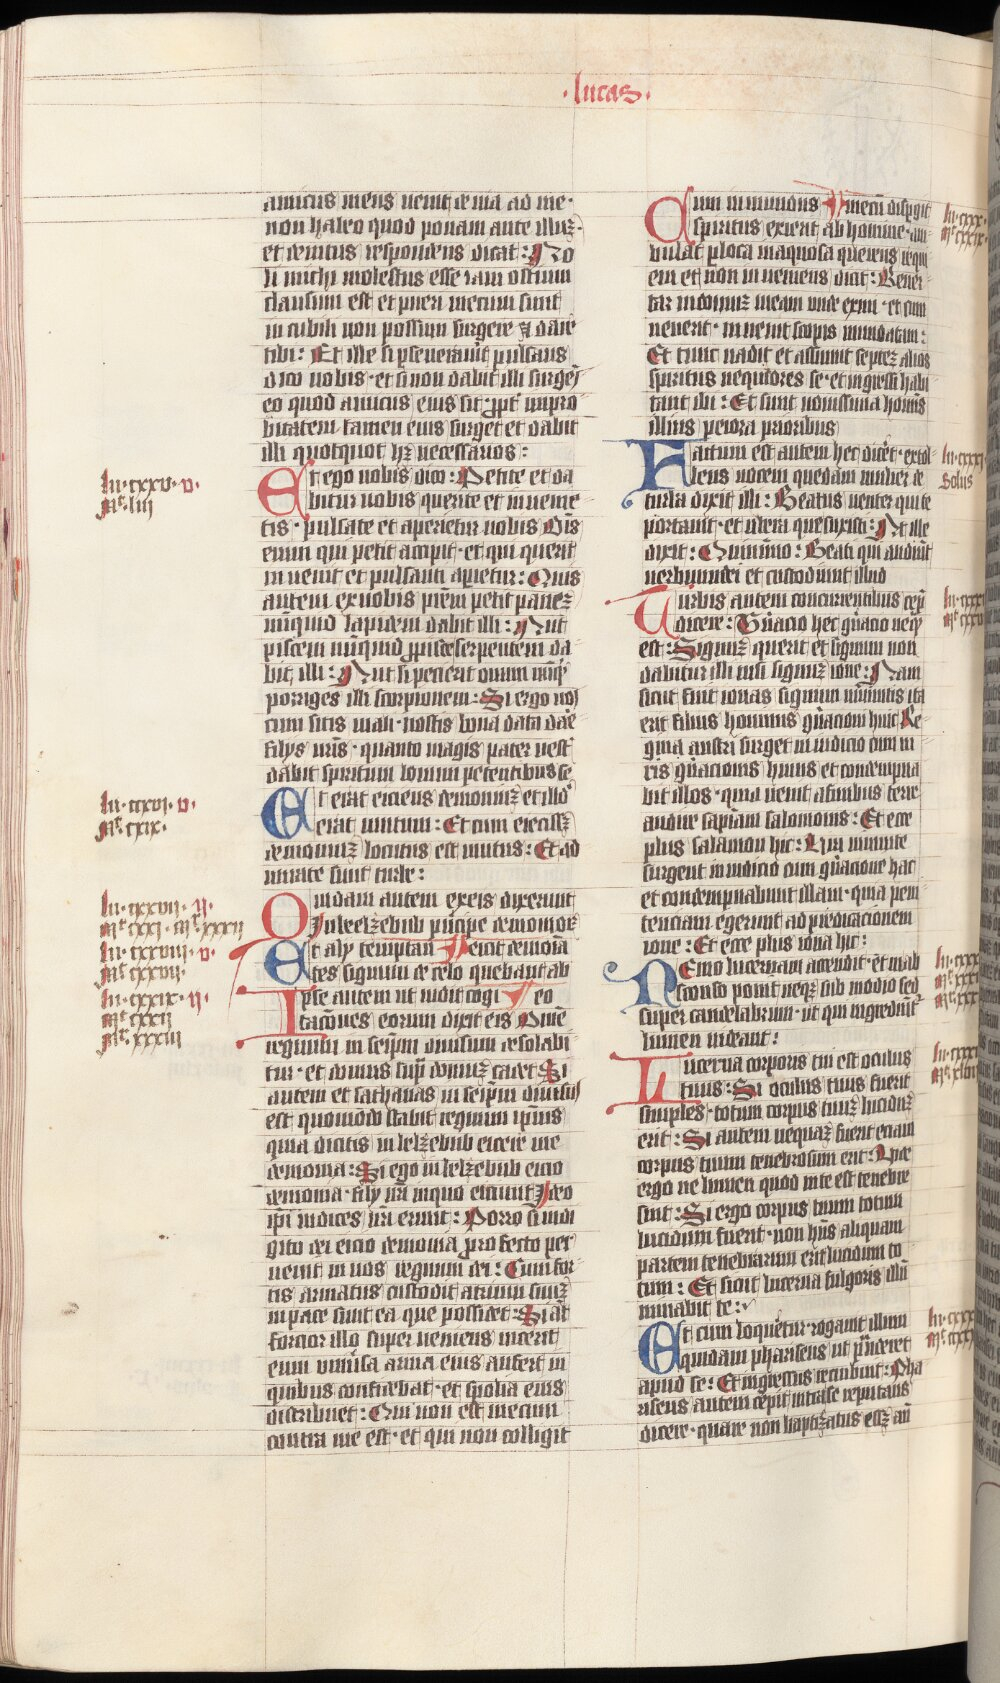 ·lucas·
amicus meus uenit de uia ad me·
non habeo quod ponam ante illuꝫ·
et deintus respondens dicat: No
li michi molestus esse iam ostium
clausum est et pueri mecum sunt
in cubili non possum surgere ⁊ dare
tibi: Et ille si ꝑseuerauit pulsans
dico uobis· et si non dabit illi surgeͬ
eo quod amicus eius sit· ꝓpt̾ impro
bitatem tamen eius surget et dabit
illi quotquot hꝫ necessarios:
Et ego uobis dico: Petite et da
bitur uobis querite et inuenie
tis· pulsate et aperietur uobis Om̄s
enim qui petit accipit· et qui querit
in uenit et pulsanti aꝑietur: Quis
autem ex uobis prēm petit paneꝫ
nūquid lapidem dabit illi: Aut
piscem nūquid ꝓ pisce serpentem da
bit illi: Aut si petierit ouum nūqͥd
porriges illi scorpionem· Si ergo uos
cum sitis mali· nostis bona data dare
filijs ur̄is· quanto magis pater uest̾
dabit spiritum bonum petentibus se
Et erat eiciens demoniuꝫ et illd̾
erat mutum: Et cum eiecisseꝫ
demoniuꝫ locutus est mutus: Et ad
mirate sunt turbe:
Quidam autem ex eis dixerunt
In beelzebub principe demonioꝝ
Et alij temptan eicit demonia
tes signum de celo querebant ab
Ipse autem ut uidit cogi eo
tac̄ones eorum dixit eis Omne
regnum in seip̄m diuisum desolabi
tur· et domus sup̄ domuꝫ cadet Si
autem et sathanas in seip̄m diuisus
est quomodo stabit regnum ip̄ius
quia dicitis in belzebub eicere me
demonia: Si ego in belzebub eicio
demonia· filij ur̄i in quo eiciunt Ideo
ip̄i iudices ur̄i erunt: Porro si in di
gito dei eicio demonia profecto per
uenit in uos regnum dei: Cum for
tis armatus custodit atrium suuꝫ
in pace sunt ea que possidet: Si aūt
forcior illo super ueniens uicerit
eum uniūsa arma eius aufert in
quibus confidebat· et spolia eius
distribuet: Qui non est mecum
contra me est· et qui non colligit
Cum inmundus mecū dispgit
spiritus exierit ab homine· am
bulat ꝑ loca inaquosa querens requi
em et non in ueniens dicit: Reuer
tar in domuꝫ meam unde exiui· et cum
uenerit· inuenit scopis mundatam:
Et tunc uadit et assumit septeꝫ alios
spiritus nequiores se· et ingressi habi
tant ibi: Et sunt nouissima hoīnis
illius peiora prioribus
Factum est autem hec dicēt· extol
lens uocem quedam mulier de
turba dixit illi: Beatus uenter qui te
portauit· et ubera que suxisti: At ille
dixit: Quinimo: Beati qui audiūt
uerbum dei et custodiunt illud
Turbis autem concurrentibus cep̄
dicere: Gn̄acio hec gn̄acio neqͣ
est: Signuꝫ querit et signum non
dabitur illi nisi signuꝫ ione: Nam
sicut fuit ionas signum niniuitis ita
erit filius hominis gn̄acioni huic Re
gina austri surget in iudicio cum ui
ris gn̄acionis huius et condempna
bit illos· quia uenit a finibus terre
audire sapīam salomonis: Et ecce
plus salamon hic: Uiri niniuite
surgent in iudicio cum gn̄acione hac
et condempnabunt illam· quia peni
tenciam egerunt ad predicacionem
ione: Et ecce plus iona hic:
Nemo lucernam accendit· et in ab
sconso ponit neqꝫ sub modio sed
super candelabrum· ut qui ingrediūt̾
lumen uideant:
Lucerna corporis tui est oculus
tuus: Si oculus tuus fuerit
simplex· totum corpus tuuꝫ luciduꝫ
erit: Si autem nequaꝫ fuerit eciam
corpus tuum tenebrosum erit: Uide
ergo ne lumen quod in te est tenebre
sint: Si ergo corpus tuum totum
lucidum fuerit· non hn̄s aliquam
partem tenebrarum erit lucidum to
tum: Et sicut lucerna fulgoris illu
minabit te:
Et cum loquer̄tur· rogauit illum
quidam phariseus ut prānderet
apud se: Et ingressus recubuit: Pha
riseus autem cepit intra se reputans
dicere· quare non baptizatus esseꝫ an̄
lu· cxxv· v·
mͭ· liii
lu· cxxvi· v·
mͭ· cxix·
lu· cxxvii· ii·
mͭ· cxxi· mͬ· xxxii
lu· cxxviii· v·
mͭ· cxxvii·
lu· cxxix· ii·
mͭ· cxxii
mͬ· xxxiii
Solus